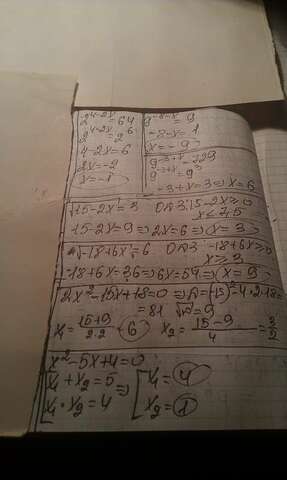 2^{4-2x}=64
2^{4-2x}=2^6
4-2x=6
2x=-2
x=-1
9^{-8-x}=9
-8-x=1
x=-9
9^{-3+x}=729
9^{-3+x}=9^3
-3+x=3⇒x=6
√15-2x=3 ОДЗ 15-2x≥0
x≤7,5
15-2x=9⇒2x=6⇒x=3
√-18+6x=6 ОДЗ -18+6x≥0
x≥3
-18+6x=36⇒6x=54⇒x=9
2x²-15x+18=0⇒D=(-15)²-4·2·18=
=81 √D=9
x₁=15+9/2·2=6 x₂=15-9/4=3/2
x²-5x+4=0
x₁+x₂=5 ⇒ x₁=4
x₁·x₂=4 x₂=1